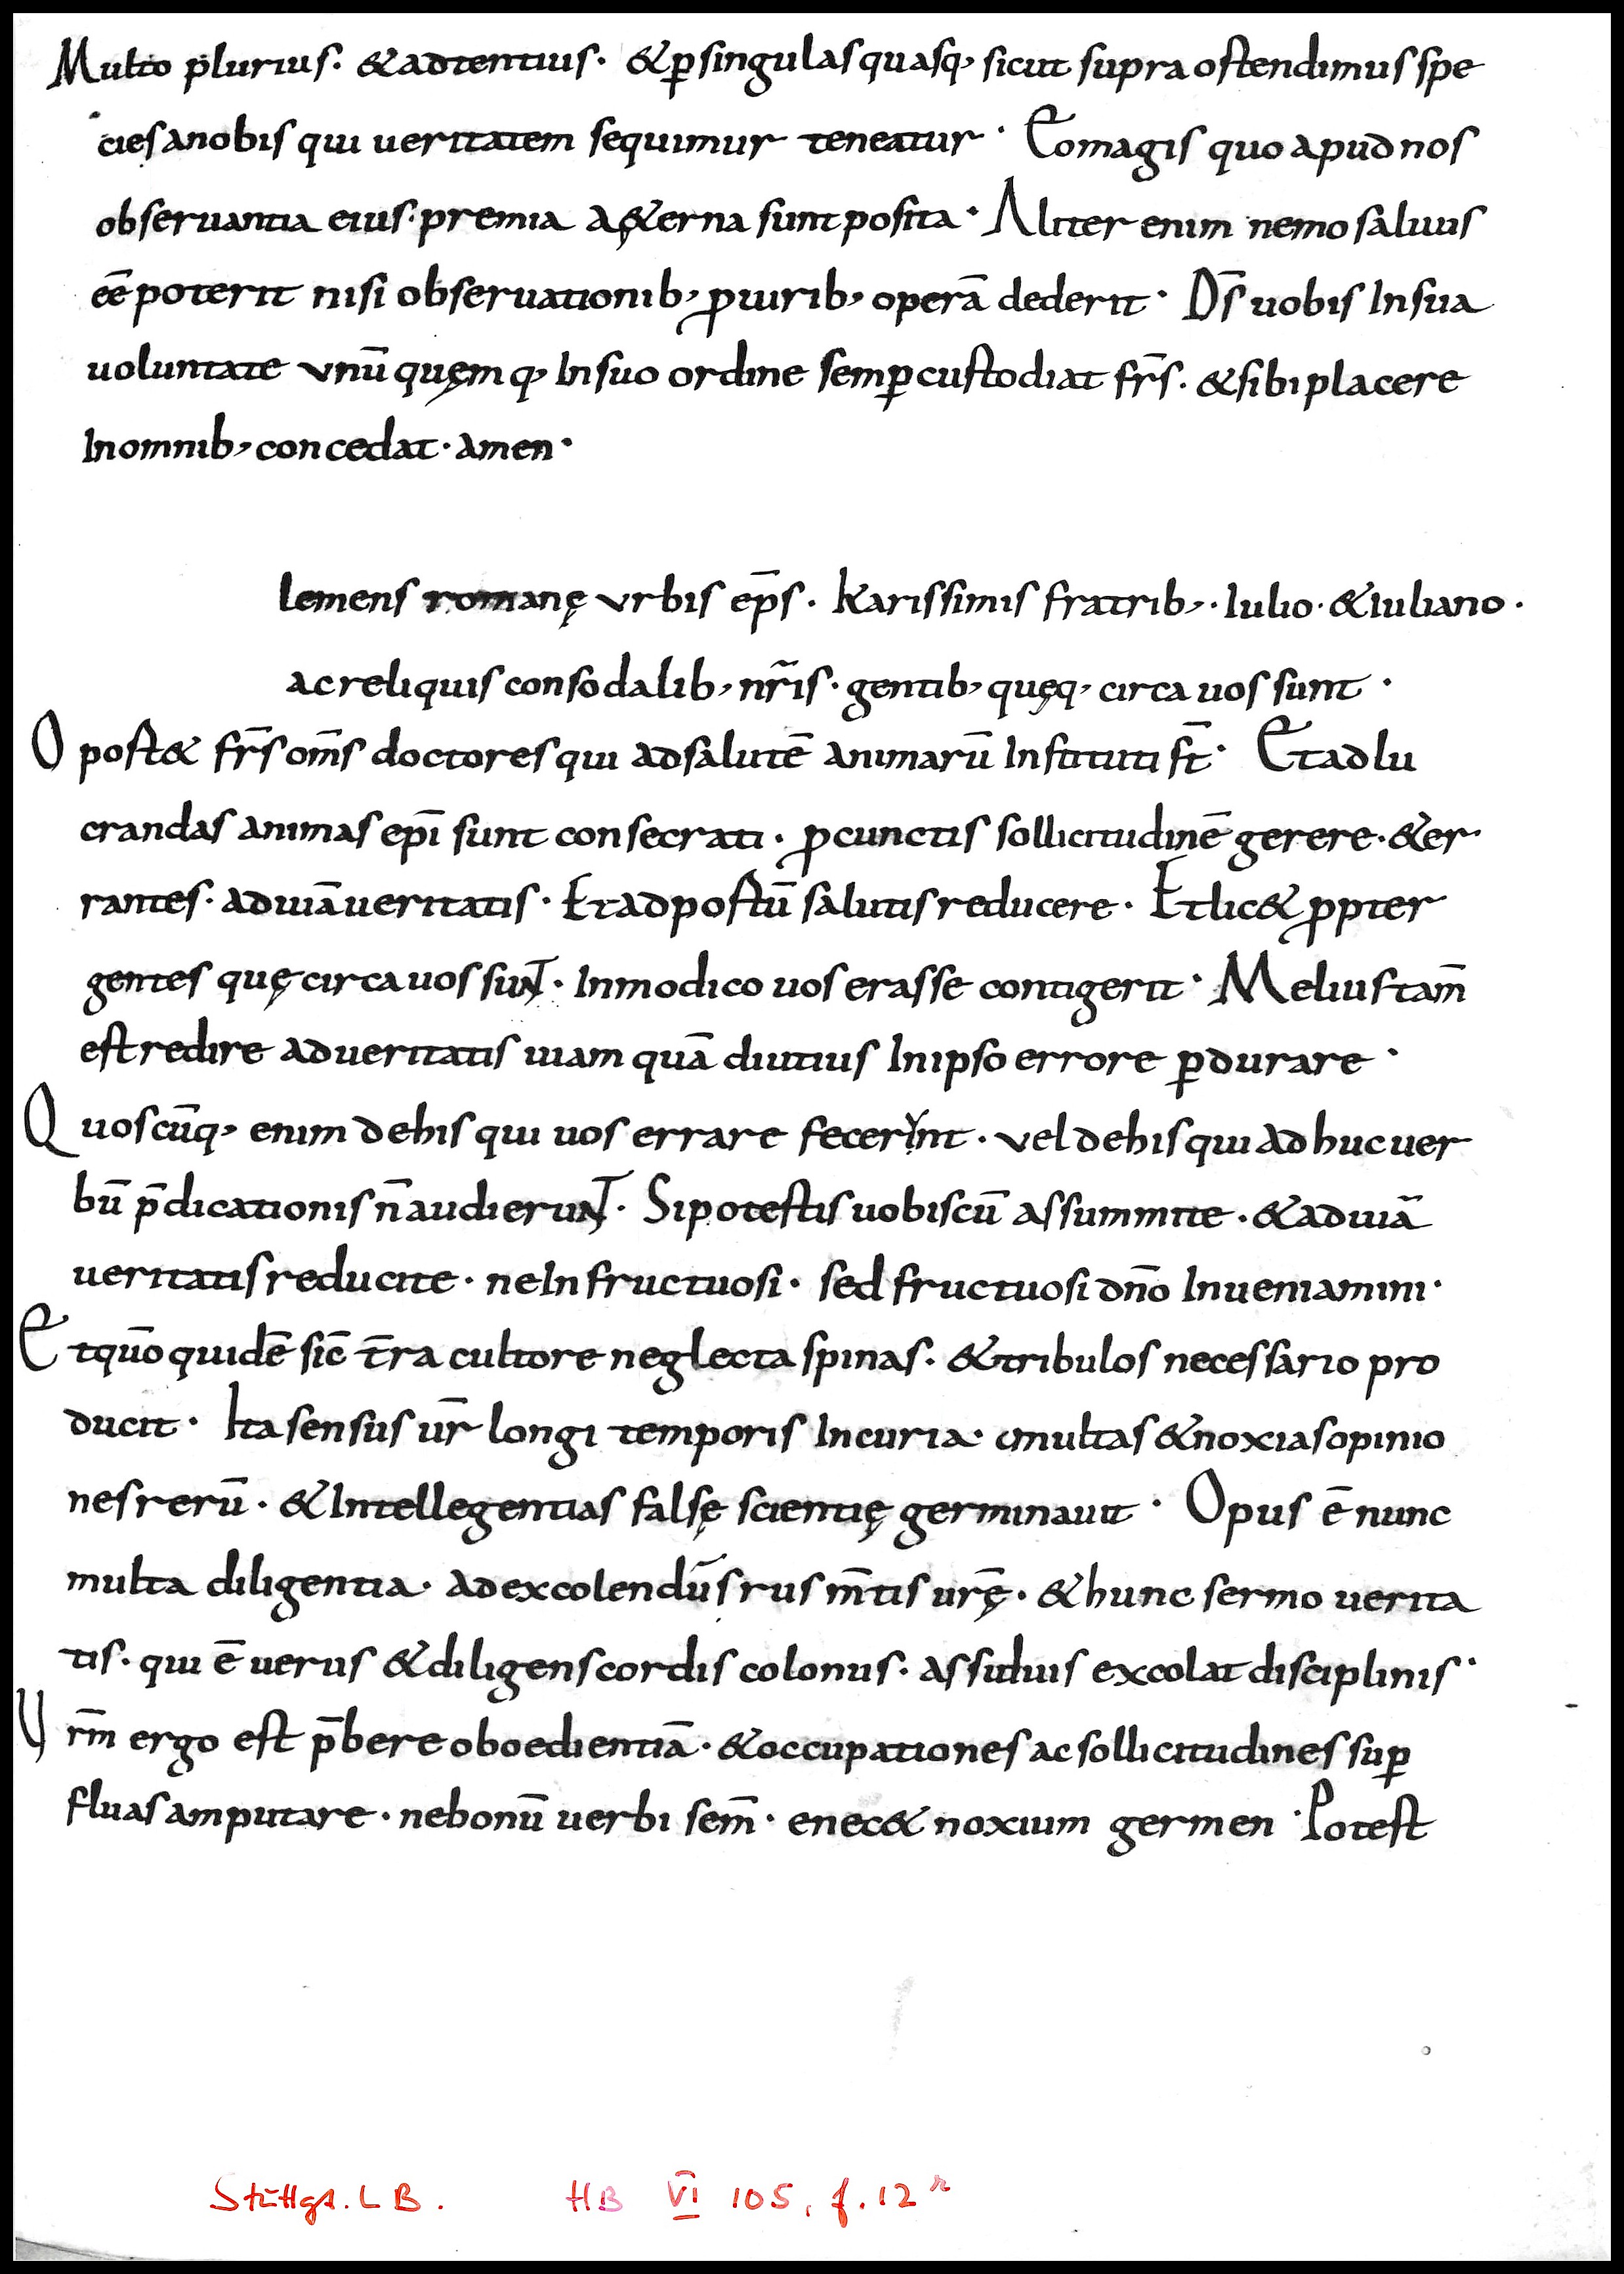 Multo plurius· &adtentius· &ꝑsingulasquasq, sicut supra ostendimus spe
cięsanobis qui ueritatem sequimur teneatur· Eomagis quo apudnos
obseruantia eius·premia aęternasuntposita· Aliter enim nemo saluus
eē poterit nisi obseruationib, ꝓuirib, operā dederit· Dꝭ̄ uobis Insua
uoluntate vnū quęmq, Insuo ordine semꝑcustodiat fr̄s· &sibiplacere
Inomnib, concedat· amen·
lemens romanę vrbis ep̄s· karissimis fratrib,· Iulio· &Iuliano·
acreliquis consodalib, nr̄is· gentib, quęq, circa uos sunt·
O post& fr̄s om̄s doctores qui adsalutē animarū Instituti sт̄· Etadlu
crandas animas ep̄i sunt consecrati· ꝓcunctis sollicitudinē gerere· &er
rantes· aduiāueritatis· Etadpostū salutisreducere· Etlic& ꝓpter
gentes quę circauos suNT· Inmodico uos erasse contigerit· Meliustam̄
estredire adueritatis uiam quā diutius Inipso errore ꝑdurare·
Q uoscūq, enim dehis qui uos errare fecerint· vel dehisqui adhuc uer
bū p̄dicationis n̄ audieruNT· Sipotestis uobiscū assummite· &aduiā
ueritatisreducite· neInfructuosi· sed fructuosi dn̄o Inueniamini·
E tquō quidē sic̄ t̄ra cultore neglecta spinas· &tribulos necessario pro
ducit· Ita sensus ur̄ longi temporis Incuria· multas &noxiasopinio
nesrerū· &Intellegentias falsę scientię germinauit· Opus ē nunc
multa diligentia· adexcolendūs rus m̄tis ur̄ę· &hunc sermo uerita
tis· qui ē uerus &diligenscordis colonus· assiduis excolat disciplinis·
U rm̄ ergo est p̄bere oboedientiā· &occupationes ac sollicitudines suꝑ
fluasamputare· nebonū uerbi sem̄· enec& noxium germen· Potest
Stuttgt. LB. HB VI 105, f. 12r